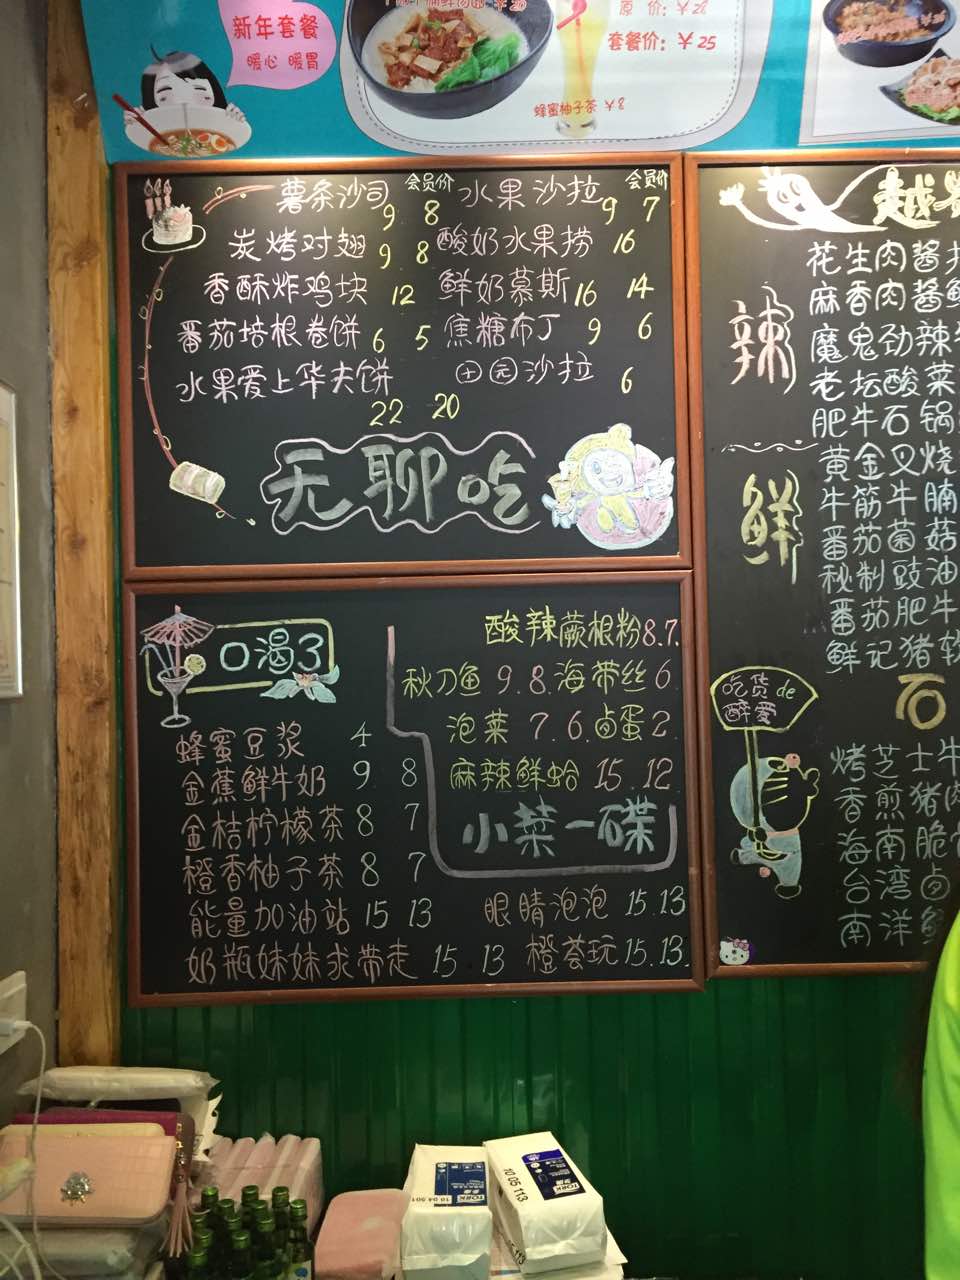 新年套餐
暖心 暖胃
原 价：￥28
套餐价：￥25
蜂蜜柚子茶 ￥8
会员价
会员价
薯条沙司 9 8
水果沙拉 9 7
炭烤对翅 9 8
酸奶水果捞 16
香酥炸鸡块 12
鲜奶慕斯 16 14
番茄培根卷饼 6 5
焦糖布丁 9 6
水果爱上华夫饼 22 20
田园沙拉 6
无聊吃
口渴了
蜂蜜豆浆 4
金蕉鲜牛奶 9 8
金桔柠檬茶 8 7
橙香柚子茶 8 7
能量加油站 15 13
奶瓶妹妹求带走 15 13
酸辣蕨根粉 8.7.
秋刀鱼 9.8.海带丝 6.
泡菜 7.6.卤蛋 2.
麻辣鲜蛤 15.12
小菜一碟
眼睛泡泡 15.13
橙荟玩 15.13.
越
辣
花生肉酱
麻香肉酱
魔鬼劲辣
老坛酸菜
肥牛石锅
鲜
黄金叉烧
牛筋牛腩
番茄菌菇
秘制豉油
番茄肥牛
鲜记猪软
石
吃货de
醉爱
烤芝士牛
香煎猪
海南脆
台湾卤
南洋
TORK
10 04 501
TORK
10 05 113